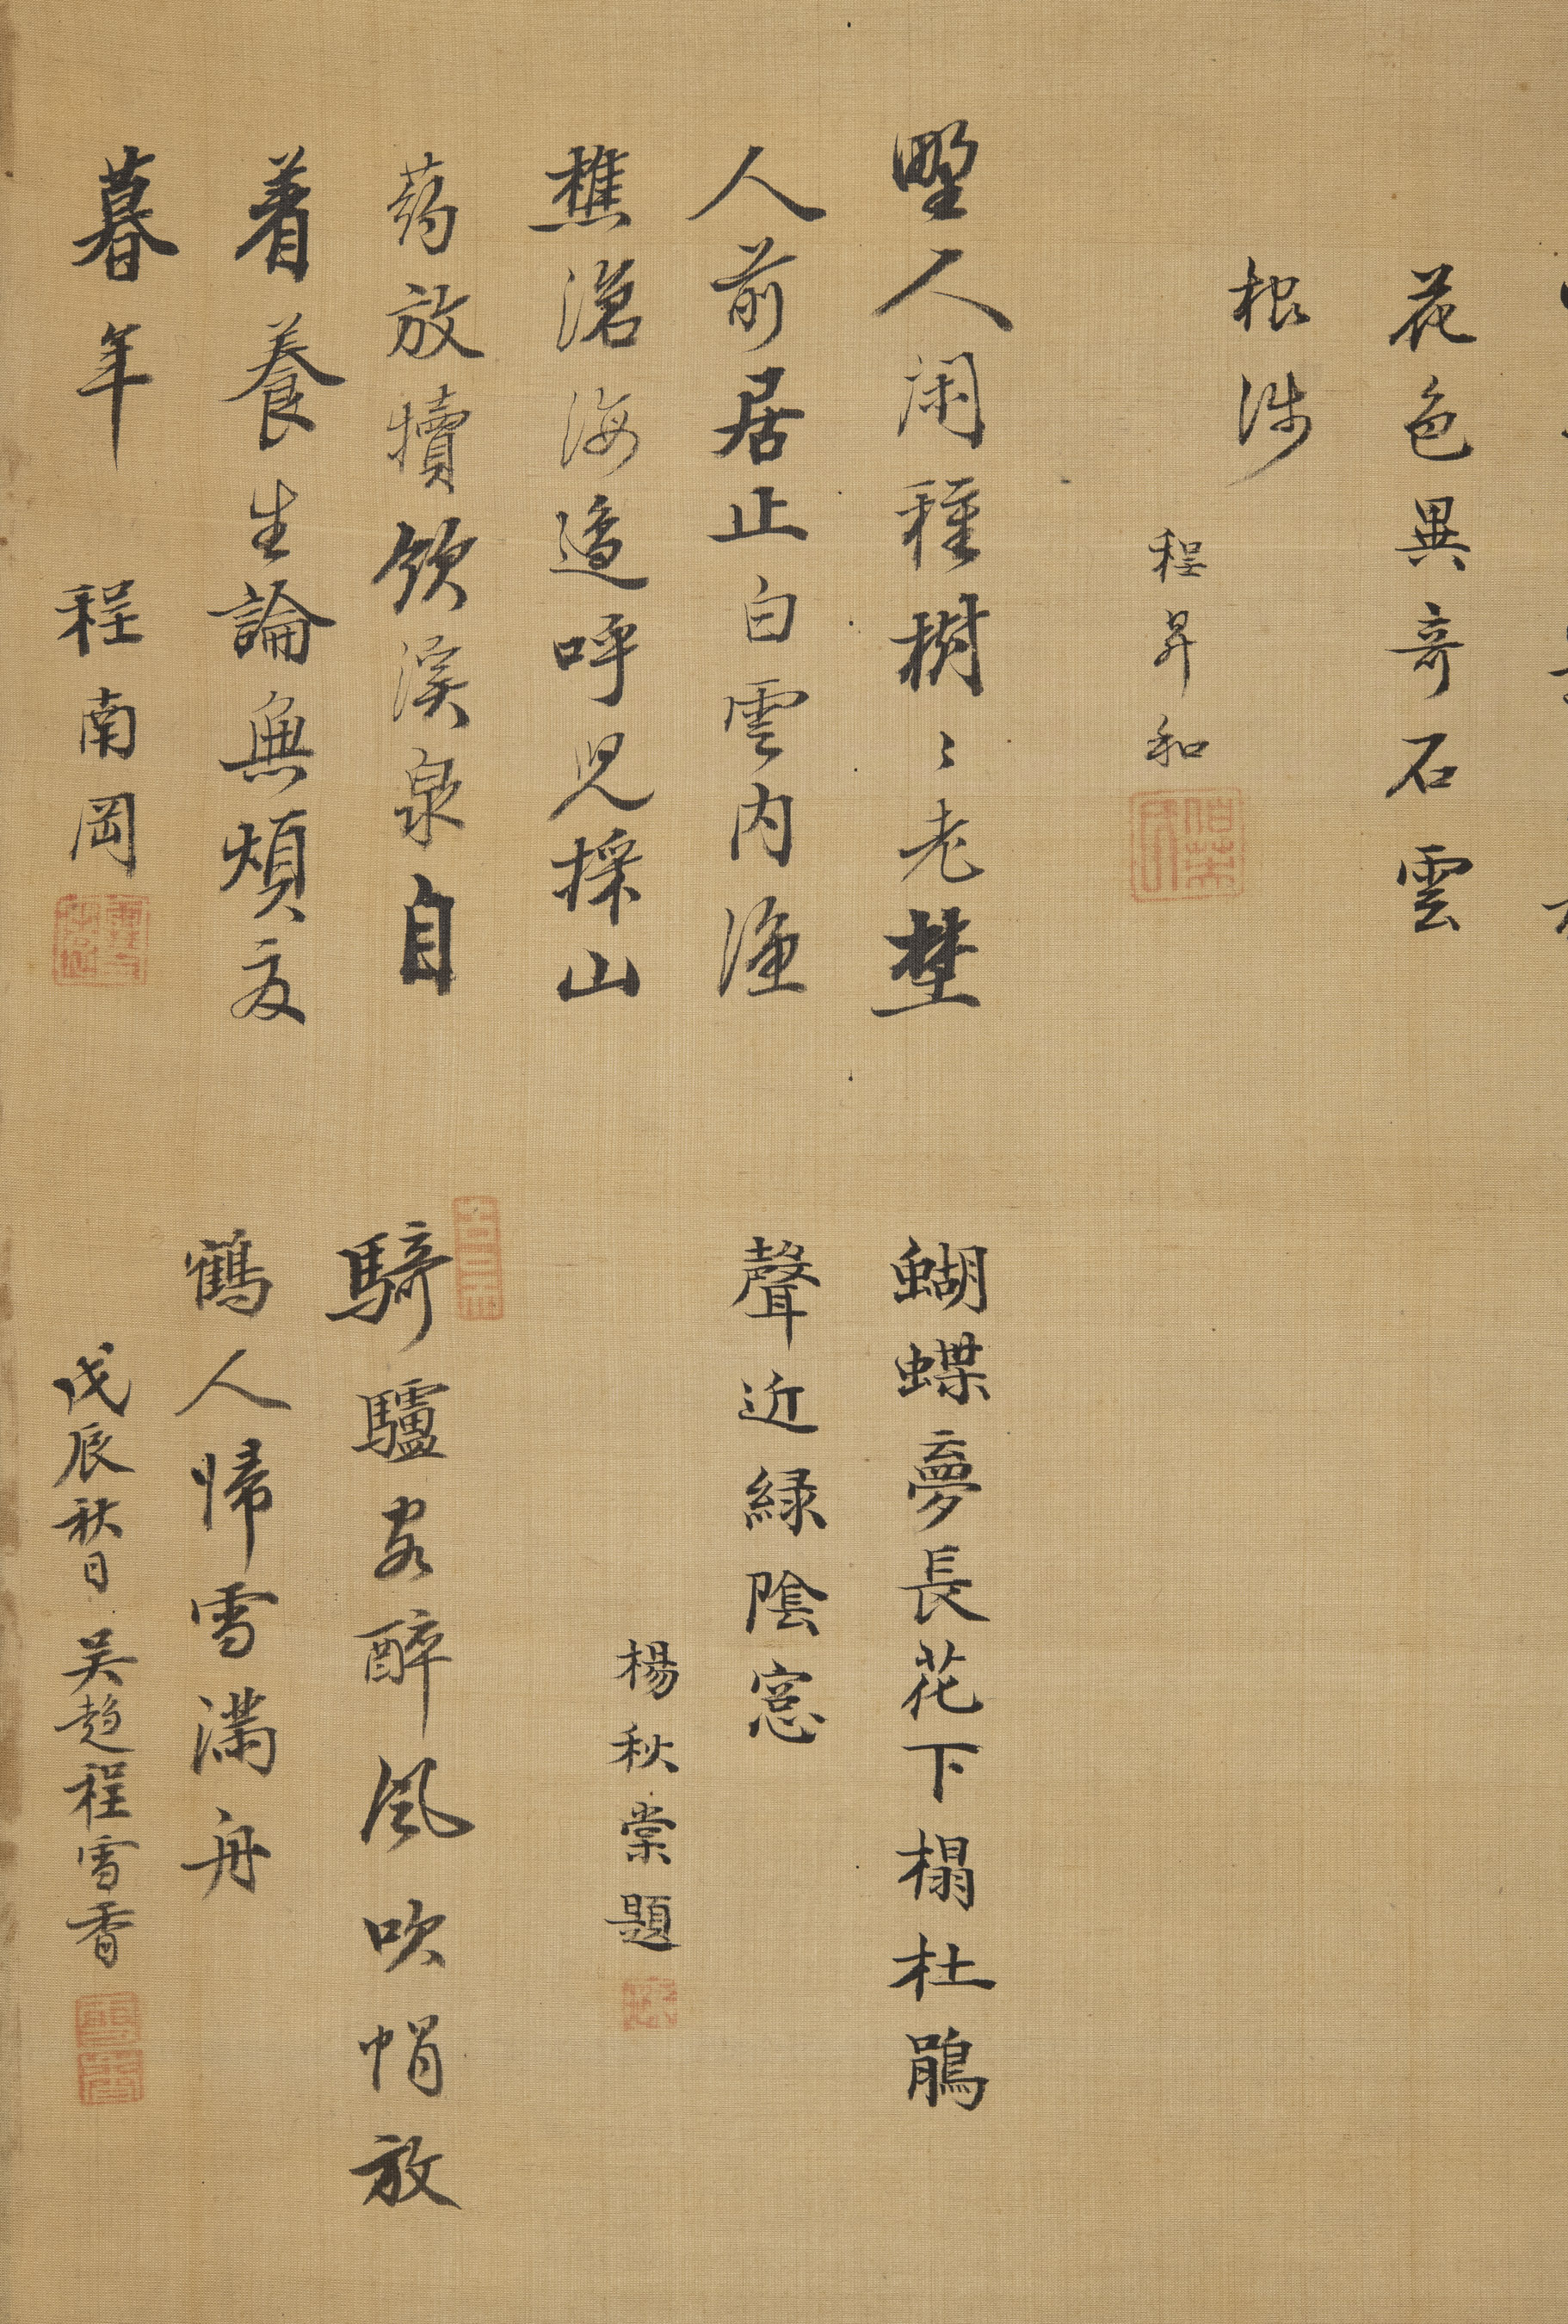 花色異奇石雲
根涉
程昇和
野人闲種樹〻老埜
人前居止白雲内漁
樵滄海邉呼児採山
葯放犢飲溪泉自
着養生論無煩友
暮年
程南岡
蝴蝶夢長花下榻杜鵑
聲近緑陰窓
楊秋棠題
騎驢客醉風吹帽放
鶴人帰雪滿舟
戊辰秋日吴趋程雪香